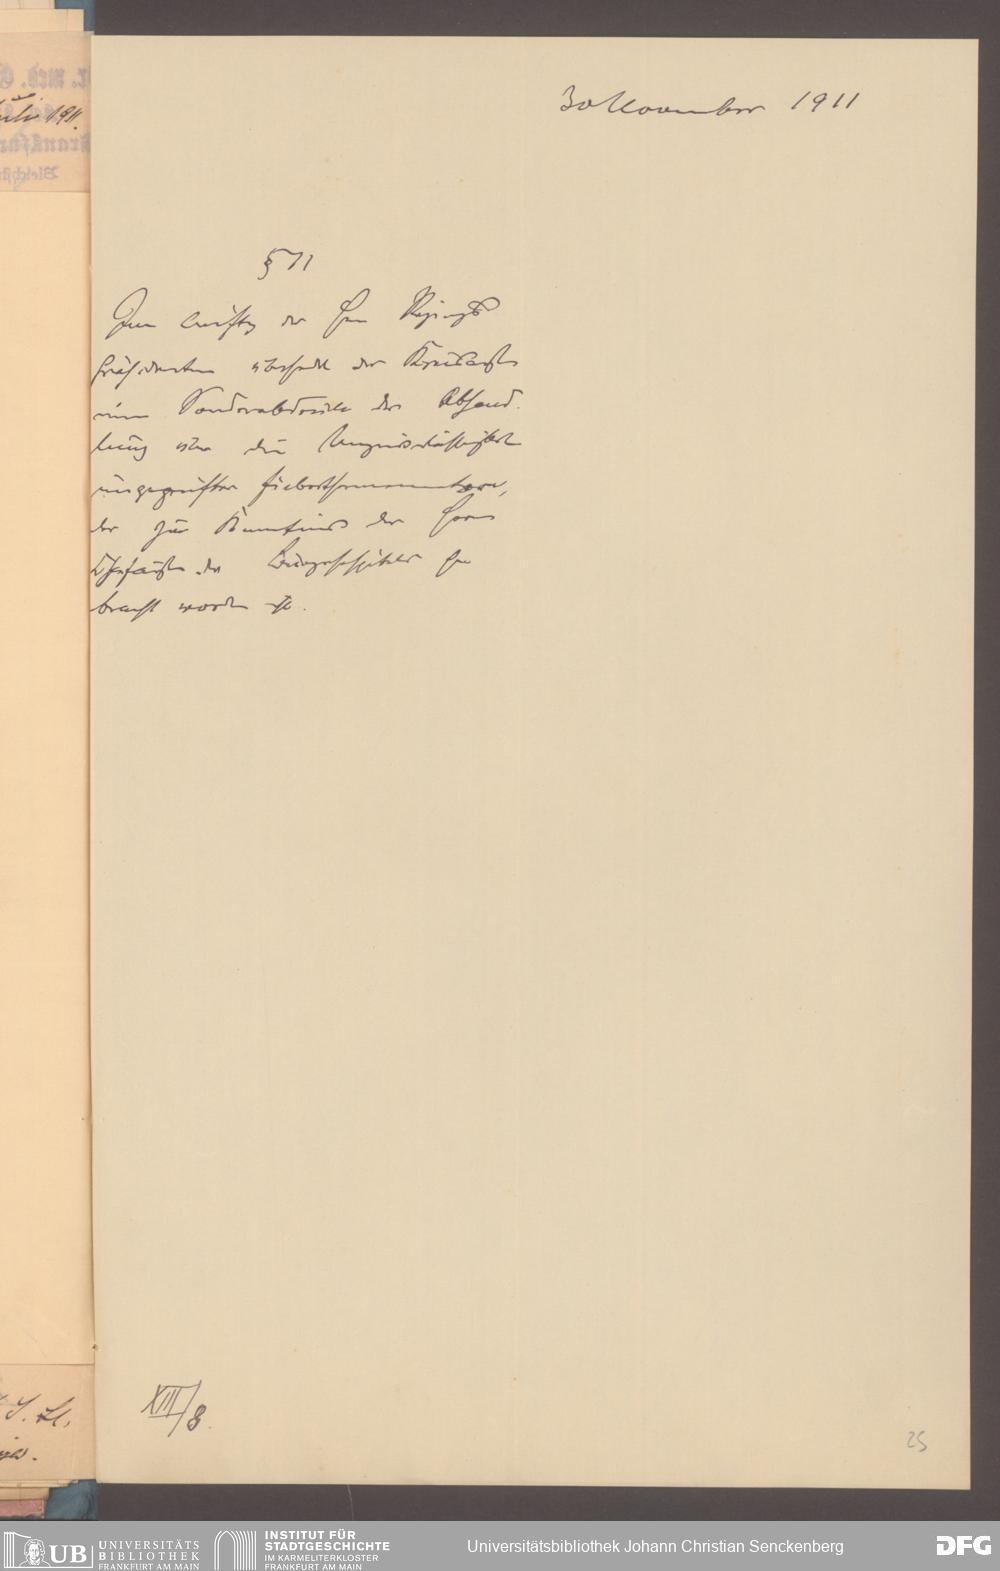 30 November 1911
§ 11
Im Auftrag des Herrn Regierungs
präsidenten übersendet der Kreisarzt
einen Sonderabdruck der Abhand-
lung über die Unzuverlässigkeit
ungeprüfter Fieberthermometer,
der zur Kenntnis der Herren
Chefärzte des Bürgerhospitals ge
bracht worden ist.
XIII/8.
25
Juli 1911
UB UNIVERSITÄTS
BIBLIOTHEK
FRANKFURT AM MAIN
INSTITUT FÜR
STADTGESCHICHTE
IM KARMELITERKLOSTER
FRANKFURT AM MAIN
Universitätsbibliothek Johann Christian Senckenberg
DFG